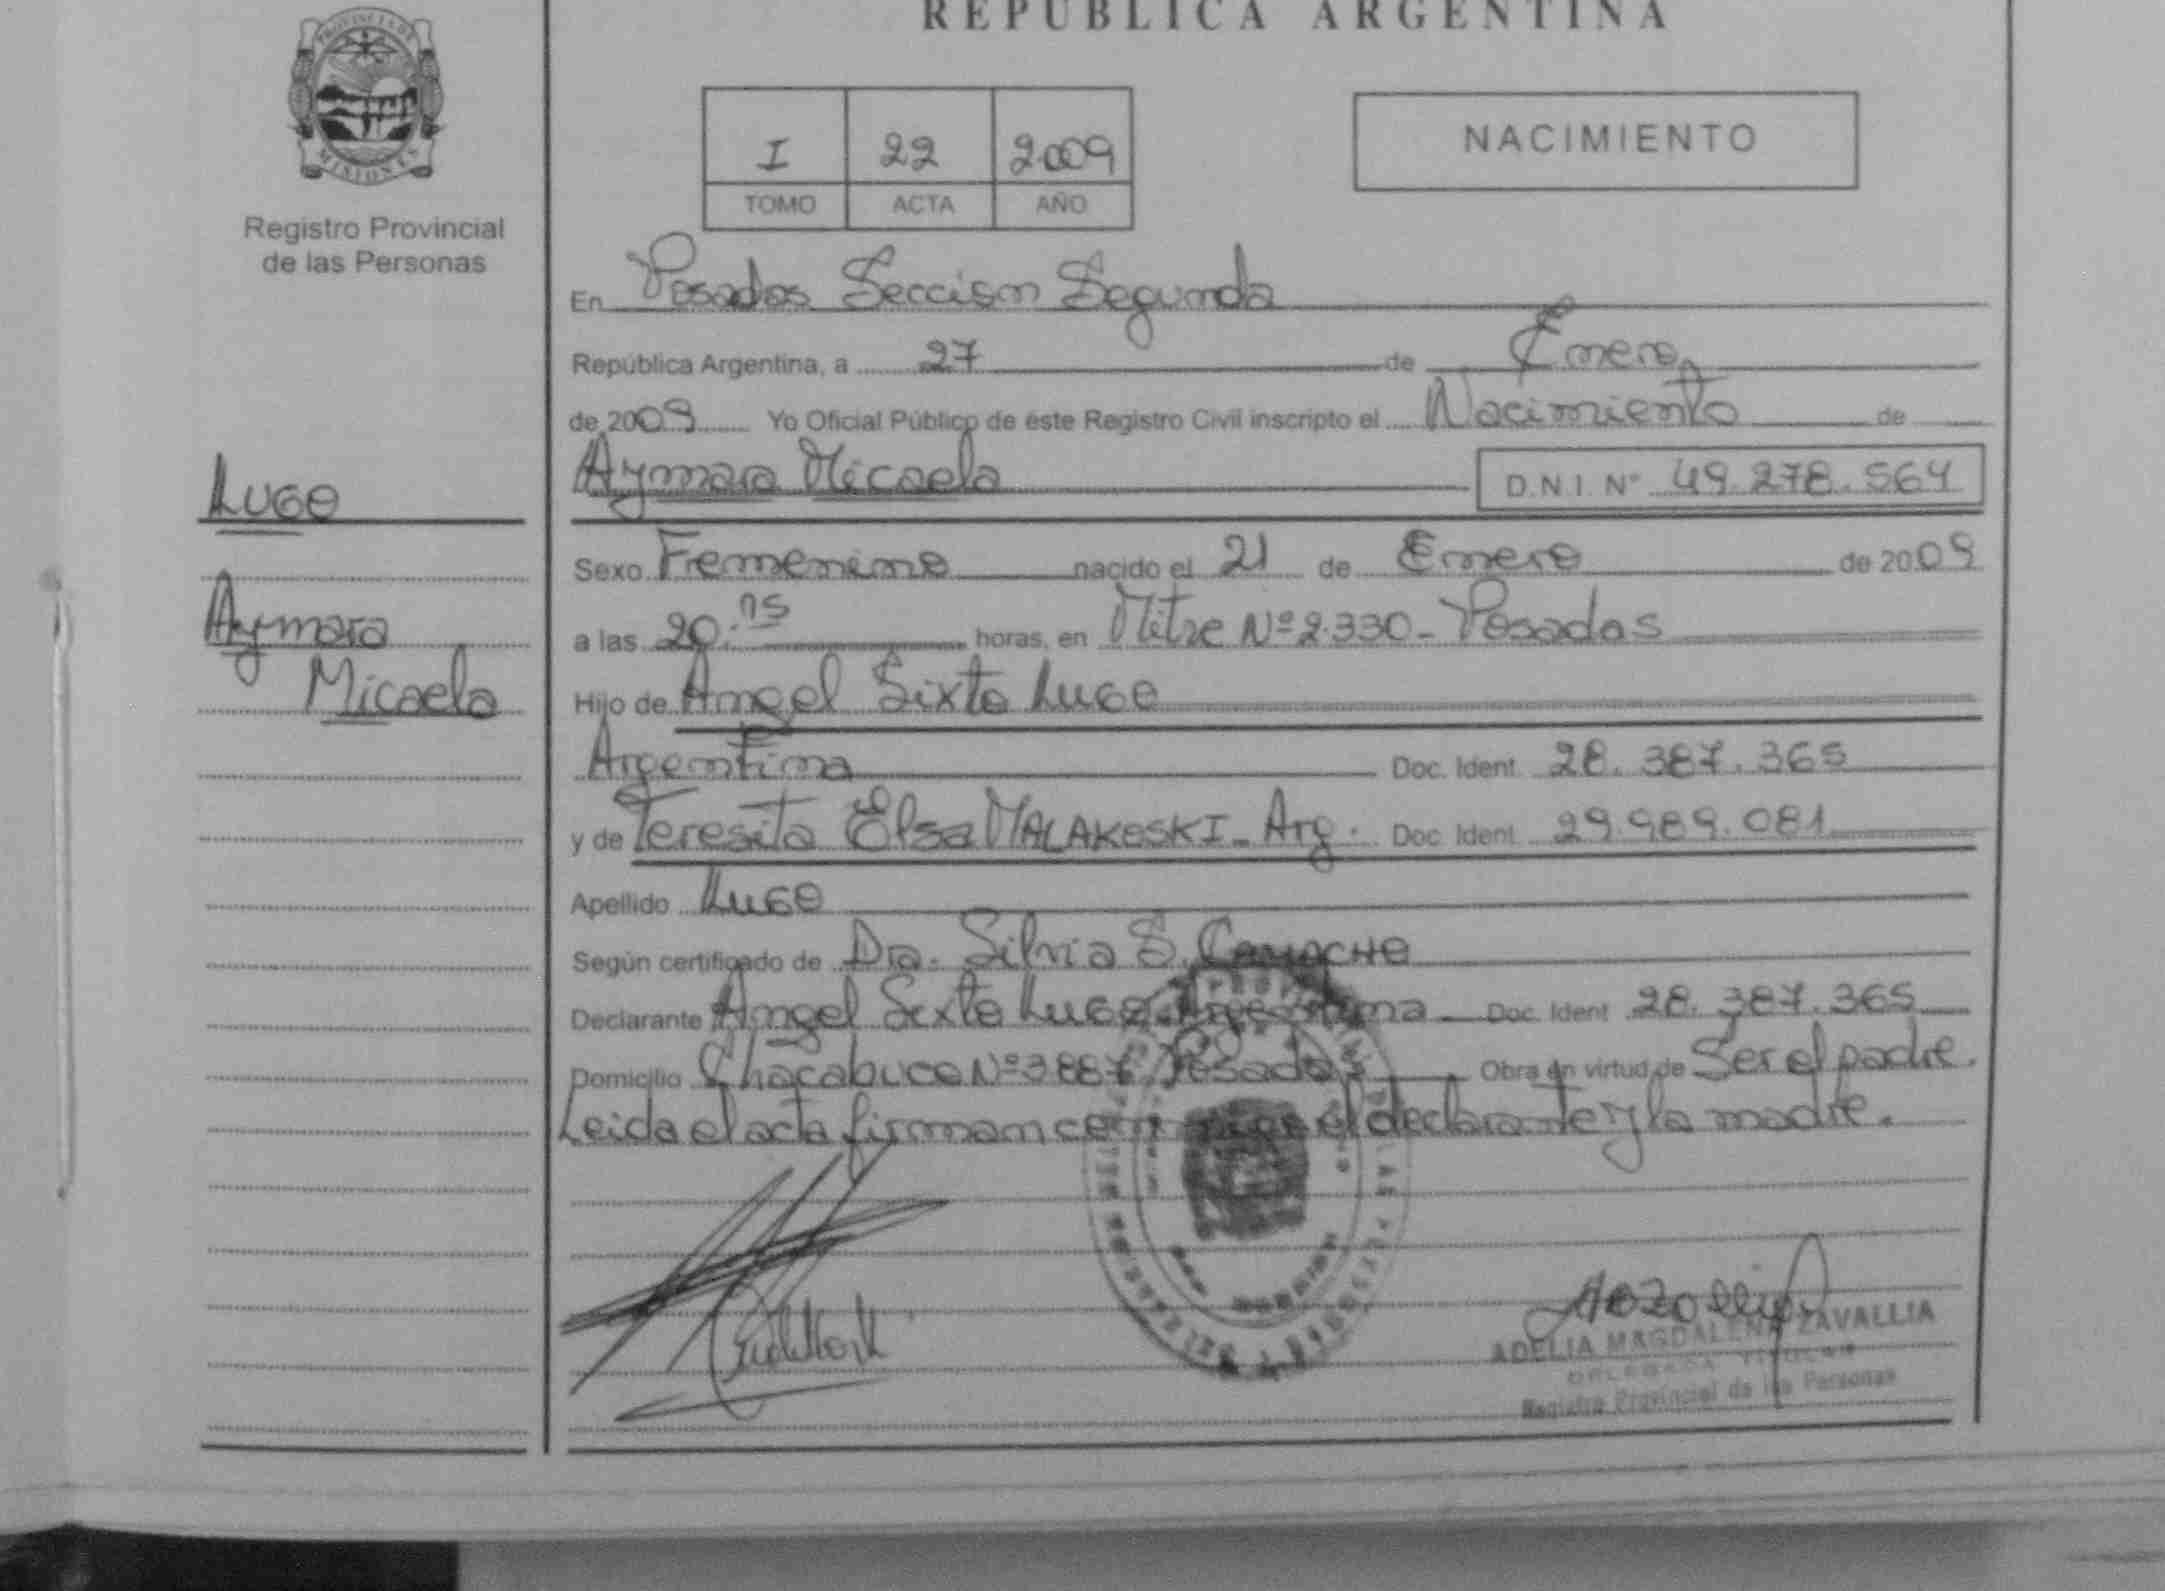 REPUBLICA ARGENTINA
PROVINCIA DE
MISIONES
Registro Provincial
de las Personas
I 22 2009
TOMO ACTA AÑO
NACIMIENTO
En Posadas Seccion Segunda
República Argentina, a 27 de Enero
de 2009 Yo Oficial Público de este Registro Civil inscripto el Nacimiento de
Lugo
Aymara Micaela D.N.I. Nº 49.278.564
Sexo Femenino nacido el 21 de Enero de 2009
Aymara
a las 20: horas, en Mitre Nº 2.330 - Posadas
Micaela
Hijo de Angel Sixto Lugo
Argentina Doc. Ident. 28.387.365
y de Teresita Elsa MALAKOSKI - Arg. Doc. Ident. 29.989.081
Apellido Lugo
Según certificado de Dra. Silvia S.
Declarante Angel Sixto Lugo Argentina - Doc. Ident 28.387.365
Domicilio Chacabuco Nº Posadas Obra en virtud de Ser el padre.
Leida el acta firman el declarante y la madre.
ADELIA MAGDALENA ZAVALLIA
DELEGADA TITULAR
Registro Provincial de las Personas